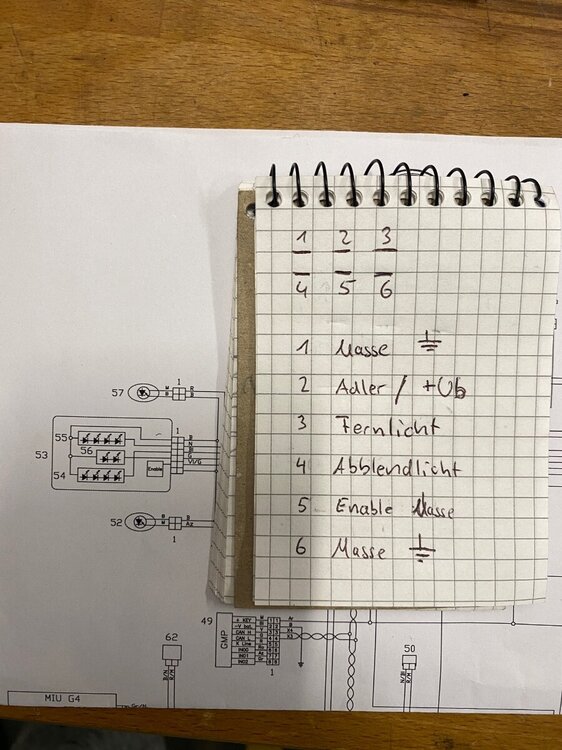 1 2 3
4 5 6
1 Masse
2 Adler / +Ub
3 Fernlicht
4 Abblendlicht
5 Enable Masse
6 Masse
57
1
M R
B B
55
56
53
54
1
B
N
Bi
G
Vi/G
Enable
52
B B
M Az
1
49
GMP
+ KEY
-V bat.
CAN H
CAN L
K Line
IND0
IND1
IND2
Ar
B
X4
X3
1
62
50
MIU G4
Gr/N